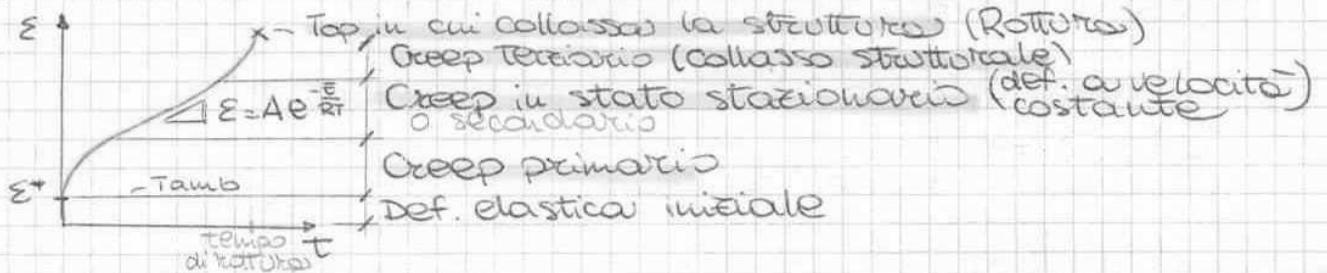 ε
x - Top, in cui collassa la struttura (Rottura)
Creep terziario (collasso strutturale)
ε = A e^-E/RT
Creep in stato stazionario (def. a velocità costante)
o secondario
Creep primario
ε*
- Tamb
Def. elastica iniziale
tempo di rottura
t